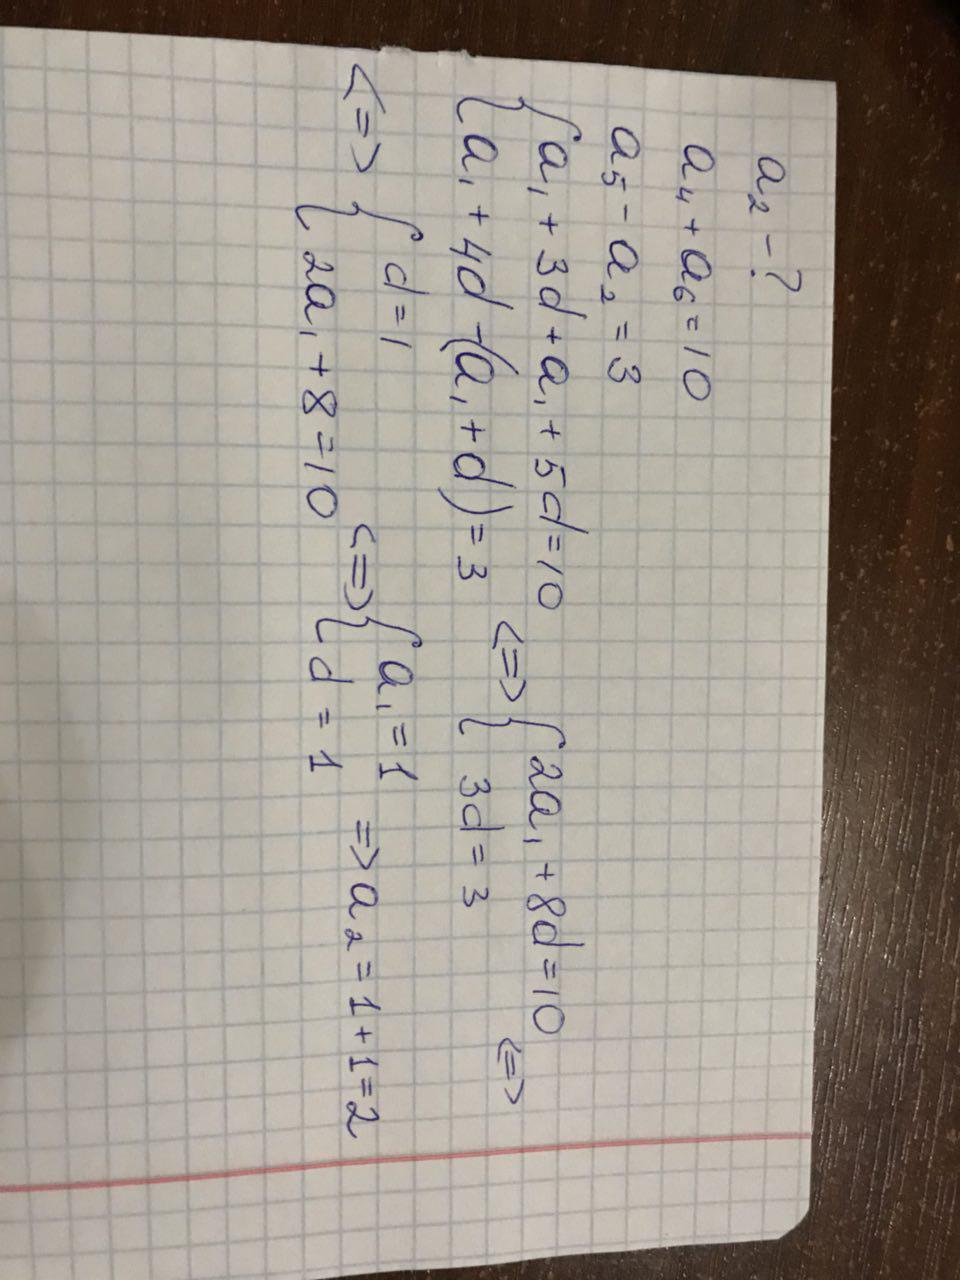 a₂ - ?
a₄ + a₆ = 10
a₅ - a₂ = 3
{ a₁ + 3d + a₁ + 5d = 10
a₁ + 4d - (a₁ + d) = 3 <=> { 2a₁ + 8d = 10
3d = 3 <=>
<=> { d = 1
2a₁ + 8 = 10 <=> { a₁ = 1
d = 1 => a₂ = 1 + 1 = 2